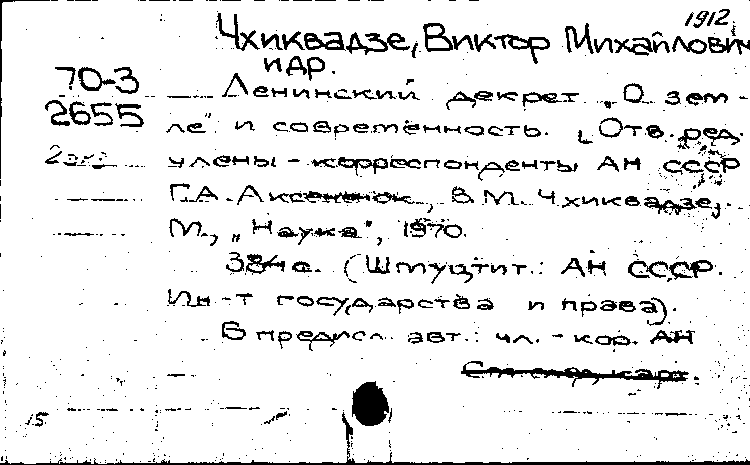 1912
Чхиквадзе, Виктор Михайлович
и др.
70-3 Ленинский декрет „О зем-
2655 ле" и современность. [Отв. ред.
2 экз. члены-корреспонденты АН СССР
Г.А. Аксененок, В.М. Чхиквадзе,
М., „Наука", 1970.
384 с. (Шмуцтит.: АН СССР.
Ин-т государства и права).
В предисл. авт.: чл.-кор. АН
См. след. карт.
15